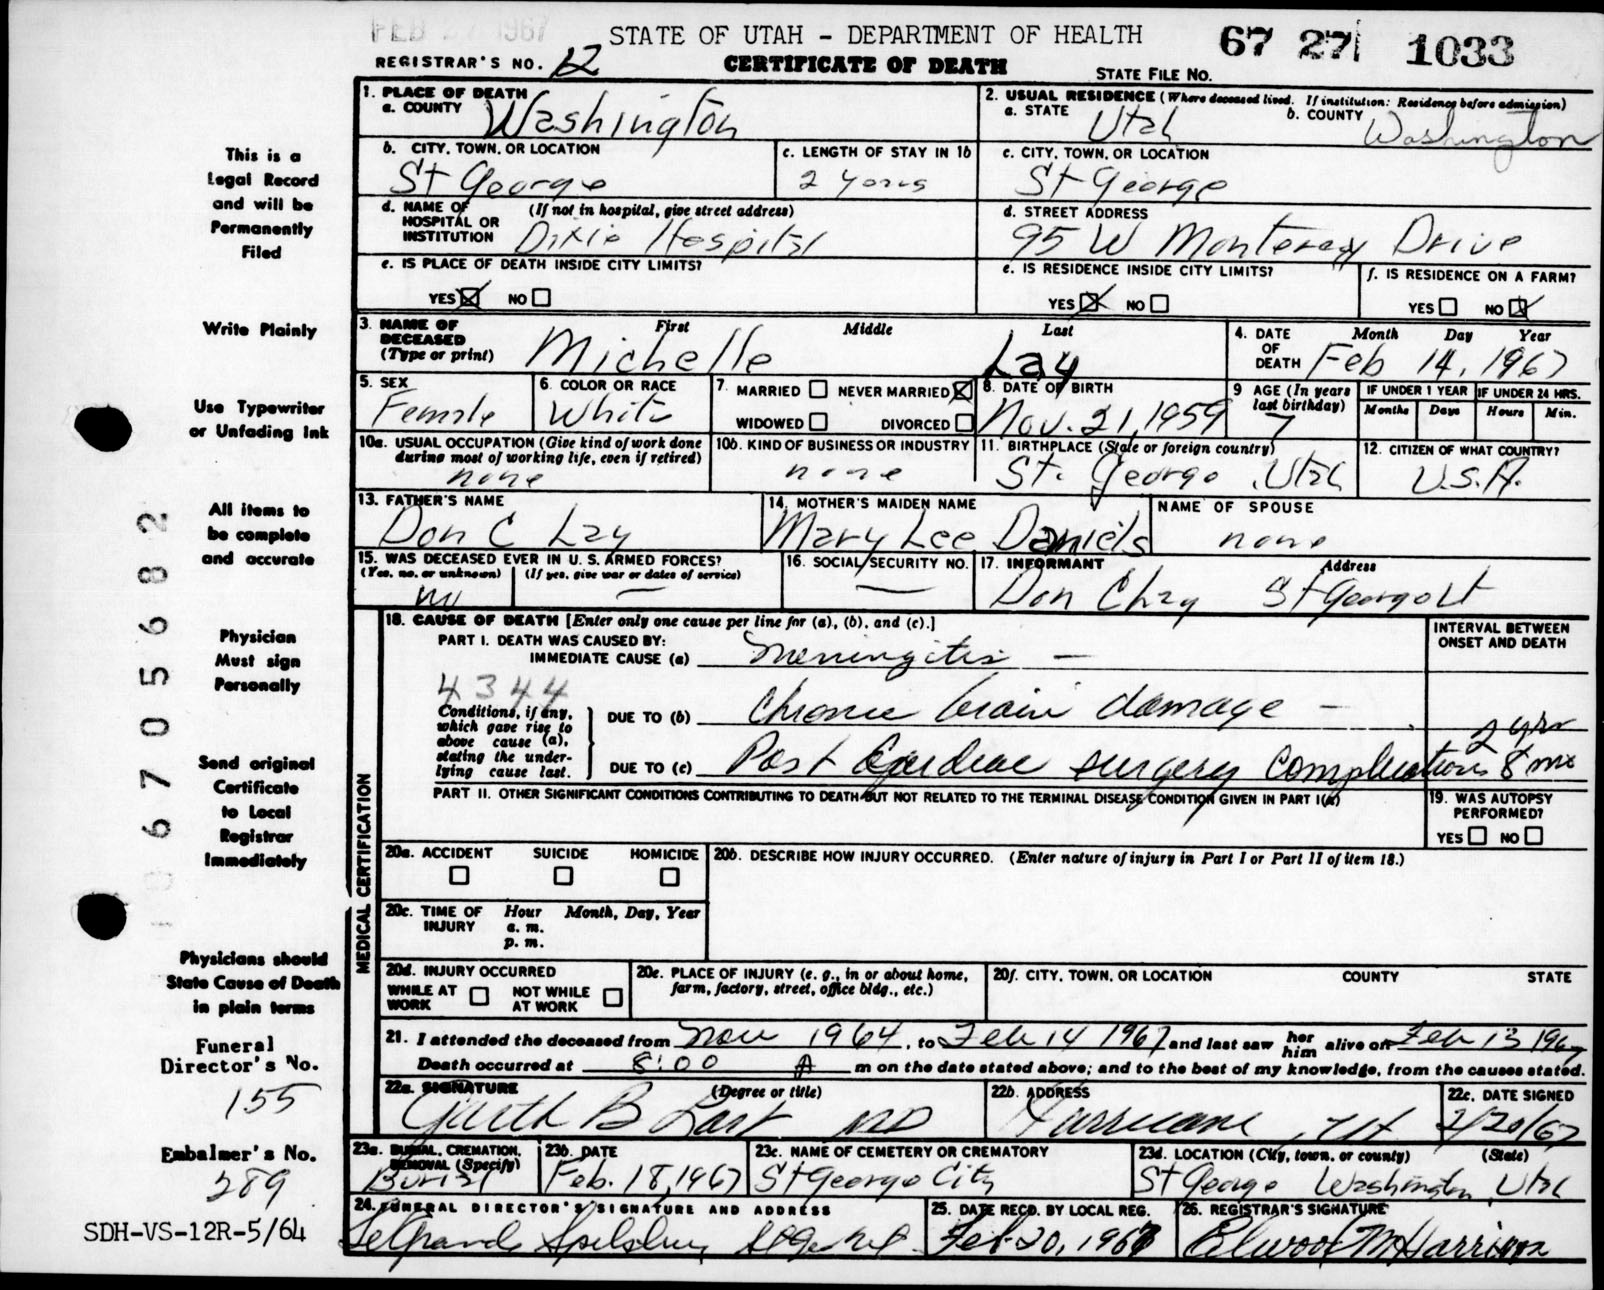 FEB 27 1967
STATE OF UTAH - DEPARTMENT OF HEALTH
67 27 1033
REGISTRAR'S NO. 12
CERTIFICATE OF DEATH
STATE FILE NO.
1. PLACE OF DEATH
a. COUNTY Washington
2. USUAL RESIDENCE (Where deceased lived. If institution: Residence before admission)
a. STATE Utah b. COUNTY Washington
b. CITY, TOWN, OR LOCATION St George
c. LENGTH OF STAY IN 1b 2 years
c. CITY, TOWN, OR LOCATION St George
d. NAME OF HOSPITAL OR INSTITUTION (If not in hospital, give street address) Dixie Hospital
d. STREET ADDRESS 95 W Monterey Drive
e. IS PLACE OF DEATH INSIDE CITY LIMITS?
YES NO
e. IS RESIDENCE INSIDE CITY LIMITS?
YES NO
f. IS RESIDENCE ON A FARM?
YES NO
3. NAME OF DECEASED (Type or print)
First Middle Last
Michelle Lay
4. DATE OF DEATH Month Day Year
Feb 14, 1967
5. SEX Female
6. COLOR OR RACE White
7. MARRIED NEVER MARRIED
WIDOWED DIVORCED
8. DATE OF BIRTH Nov. 21, 1959
9 AGE (In years last birthday) 7
IF UNDER 1 YEAR Months Days
IF UNDER 24 HRS. Hours Min.
10a. USUAL OCCUPATION (Give kind of work done during most of working life, even if retired) none
10b. KIND OF BUSINESS OR INDUSTRY none
11. BIRTHPLACE (State or foreign country) St. George, Utah
12. CITIZEN OF WHAT COUNTRY? U.S.A.
13. FATHER'S NAME Don C Lay
14. MOTHER'S MAIDEN NAME Mary Lee Daniels
NAME OF SPOUSE none
15. WAS DECEASED EVER IN U. S. ARMED FORCES?
(Yes, no, or unknown) (If yes, give war or dates of service)
no —
16. SOCIAL SECURITY NO. —
17. INFORMANT Address
Don C Lay St George Ut
18. CAUSE OF DEATH [Enter only one cause per line for (a), (b), and (c).]
INTERVAL BETWEEN ONSET AND DEATH
PART I. DEATH WAS CAUSED BY:
IMMEDIATE CAUSE (a) Meningitis —
4344
Conditions, if any, which gave rise to above cause (a), stating the underlying cause last.
DUE TO (b) Chronic brain damage —
DUE TO (c) Post Cardiac surgery complications
2 yrs
PART II. OTHER SIGNIFICANT CONDITIONS CONTRIBUTING TO DEATH BUT NOT RELATED TO THE TERMINAL DISEASE CONDITION GIVEN IN PART I(A)
19. WAS AUTOPSY PERFORMED?
YES NO
MEDICAL CERTIFICATION
20a. ACCIDENT SUICIDE HOMICIDE
20b. DESCRIBE HOW INJURY OCCURRED. (Enter nature of injury in Part I or Part II of item 18.)
20c. TIME OF INJURY Hour Month, Day, Year
a. m.
p. m.
20d. INJURY OCCURRED
WHILE AT WORK NOT WHILE AT WORK
20e. PLACE OF INJURY (e. g., in or about home, farm, factory, street, office bldg., etc.)
20f. CITY, TOWN, OR LOCATION COUNTY STATE
21. I attended the deceased from Nov 1964, to Feb 14 1967 and last saw her him alive on Feb 13 1967
Death occurred at 8:00 A m on the date stated above; and to the best of my knowledge, from the causes stated.
22a. SIGNATURE (Degree or title)
Garth B Last MD
22b. ADDRESS Hurricane, Ut
22c. DATE SIGNED 2/20/67
23a. BURIAL, CREMATION, REMOVAL (Specify) Burial
23b. DATE Feb. 18, 1967
23c. NAME OF CEMETERY OR CREMATORY St George City
23d. LOCATION (City, town, or county) (State)
St George Washington Utah
24. FUNERAL DIRECTOR'S SIGNATURE AND ADDRESS
Spilsbury
25. DATE RECD. BY LOCAL REG. Feb. 20, 1967
26. REGISTRAR'S SIGNATURE
Elwood M Harrison
This is a
Legal Record
and will be
Permanently
Filed
Write Plainly
Use Typewriter
or Unfading Ink
All items to
be complete
and accurate
Physician
Must sign
Personally
Send original
Certificate
to Local
Registrar
Immediately
Physicians should
State Cause of Death
in plain terms
Funeral
Director's No.
155
Embalmer's No.
289
SDH-VS-12R-5/64
6705682